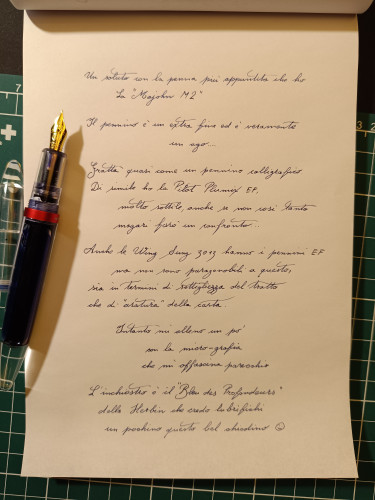 Un saluto con la penna più appuntita che ho
La "Majohn M2"
Il pennino è un extra fine ed è veramente
un ago...
Gratta quasi come un pennino calligrafico
Di simile ho la Pilot Plumex EF,
molto sottile, anche se non così tanto
magari farò un confronto...
Anche le Wing Sung 3013 hanno i pennini EF
ma non sono paragonabili a questo,
sia in termini di sottigliezza del tratto
che di "aratura" della carta
Intanto mi alleno un po'
con la micro-grafia
che mi affascina parecchio
L'inchiostro è il "Bleu des Profondeurs"
della Herbin che credo lubrifichi
un pochino questo bel chiodino ☺
7
3 2